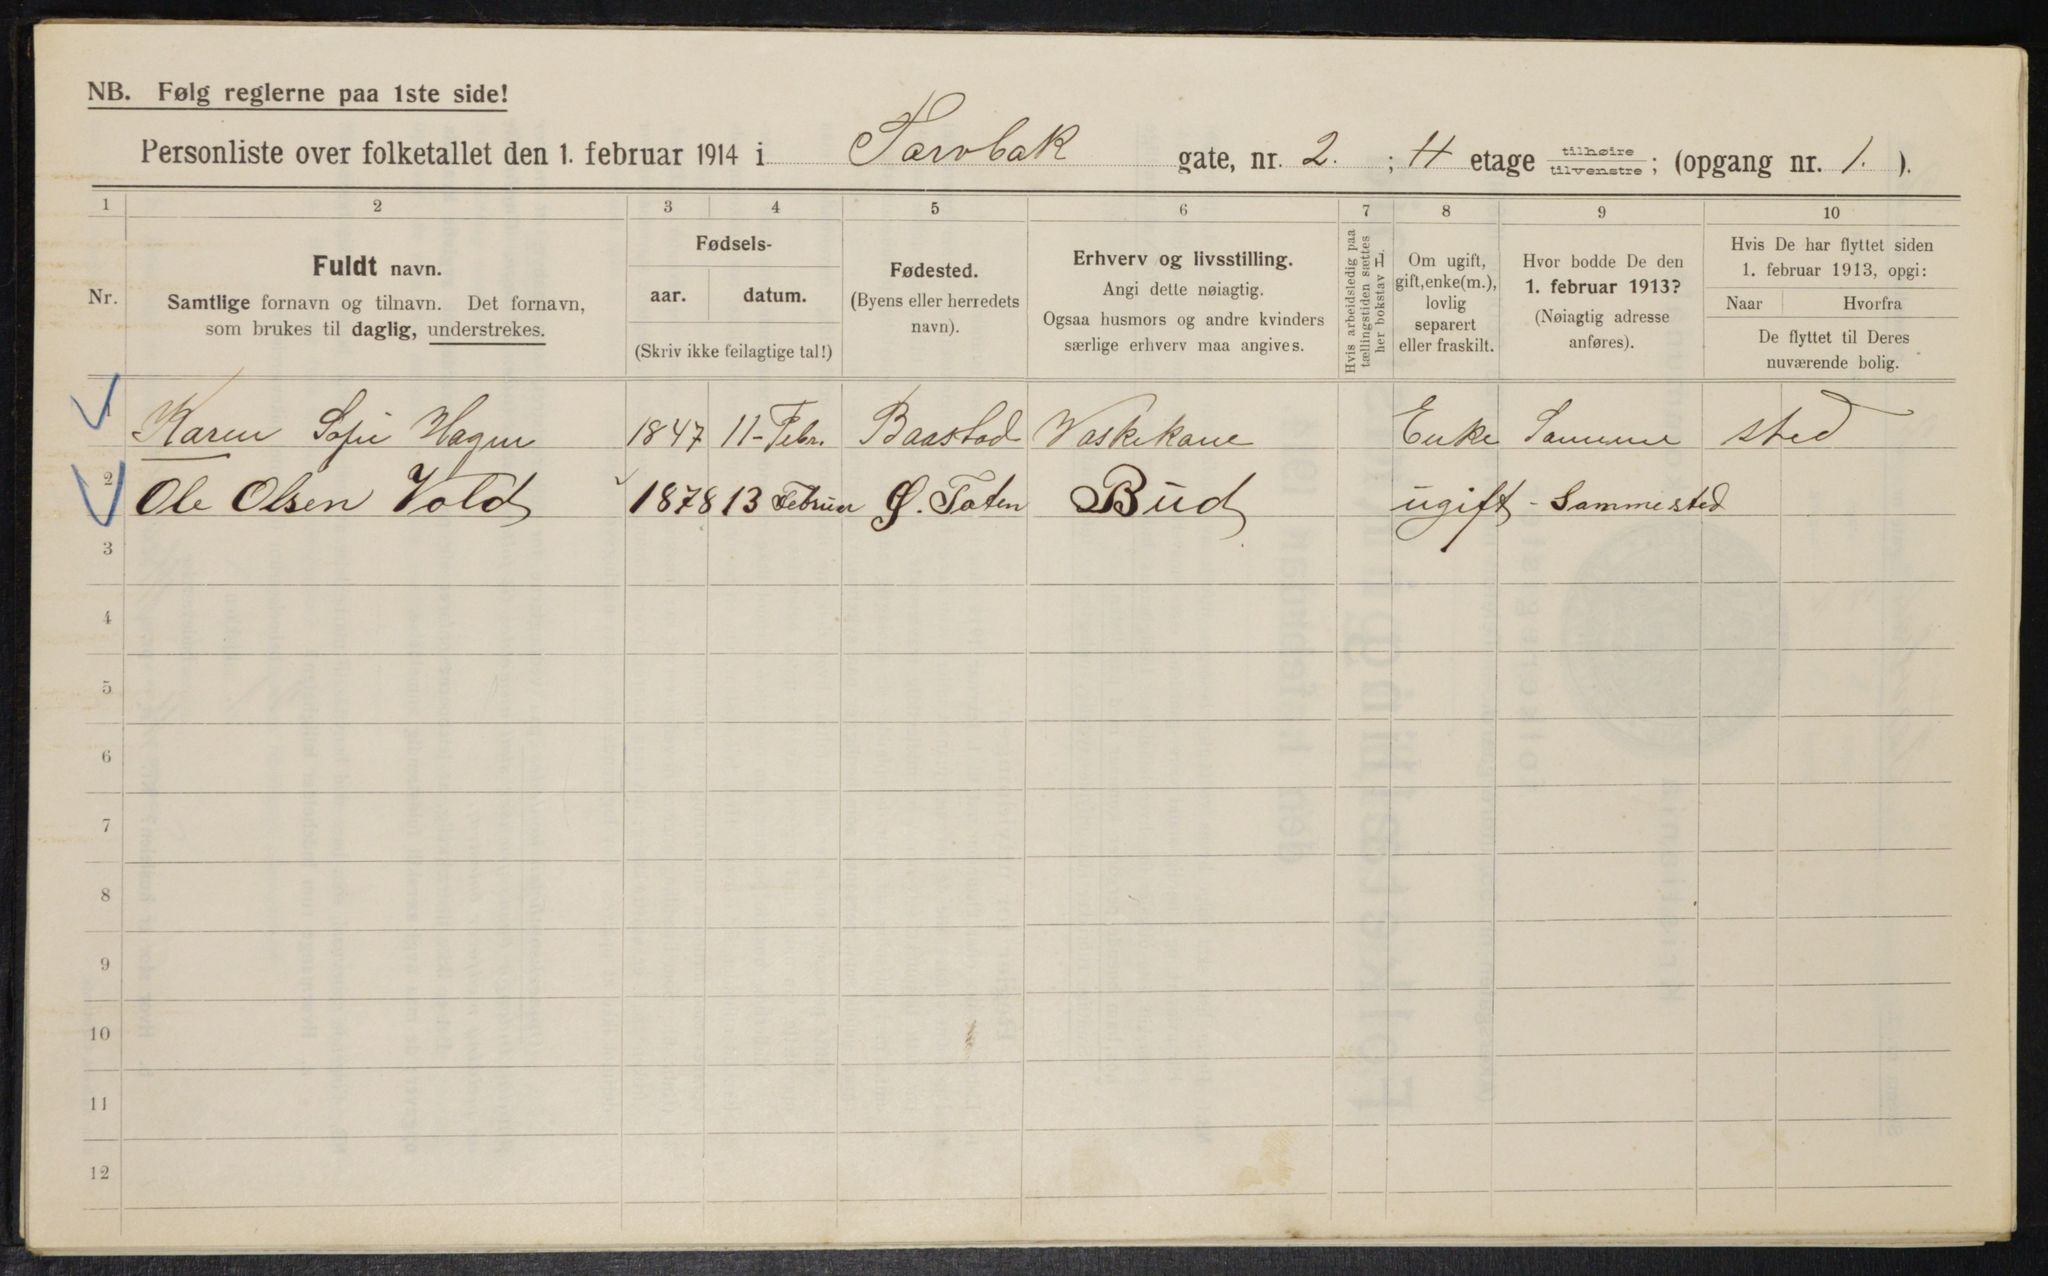 NB. Følg reglerne paa 1ste side!
Personliste over folketallet den 1. februar 1914 i Torvbak gate, nr. 2. ; H etage tilhøire tilvenstre ; (opgang nr. 1. ).
1 2 3 4 5 6 7 8 9 10
Nr.
Fuldt navn.
Samtlige fornavn og tilnavn. Det fornavn,
som brukes til daglig, understrekes.
Fødsels-
aar. datum.
(Skriv ikke feilagtige tal!)
Fødested.
(Byens eller herredets
navn).
Erhverv og livsstilling.
Angi dette nøiagtig.
Ogsaa husmors og andre kvinders
særlige erhverv maa angives.
Hvis arbeidsledig paa
tællingstiden sættes
her bokstav L.
Om ugift,
gift, enke(m.),
lovlig
separert
eller fraskilt.
Hvor bodde De den
1. februar 1913?
(Nøiagtig adresse
anføres).
Hvis De har flyttet siden
1. februar 1913, opgi:
Naar Hvorfra
De flyttet til Deres
nuværende bolig.
1 Karen Sofie Hagen 1847 11-Febr. Baastad Vaskekone Enke Samme sted
2 Ole Olsen Vold 1878 13 Februar Ø. Toten Bud ugift - Sammested
3
4
5
6
7
8
9
10
11
12